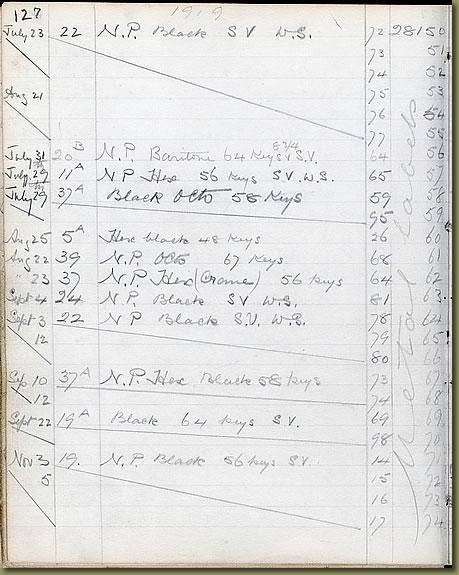 127 1919
July 23 22 N.P. Black SV W.S. 72 28150
73 51
74 52
Aug 21 75 53
76 54
77 55
July 31 20B N.P. Baritone 64 Keys 8 3/4 S.V. 64 56
July 29 11A N.P. Hex 56 Keys S.V. W.S. 65 57
July 29 37A Black Octo 58 Keys 59 58
95 59
Aug 25 5A Hex black 48 Keys 26 60
Aug 22 39 N.P. Octo 67 Keys 68 61
" 23 37 N.P. Hex (Crane) 56 Keys 64 62
Sept 4 24 N.P. Black SV W.S. 81 63
Sept 3 22 N P Black S.V. W.S. 78 64
12 79 65
80 66
Sep 10 37A N.P. Hex Black 58 Keys 73 67
12 74 68
Sept 22 19A Black 64 Keys S.V. 69 69
98 70
Nov 3 19. N.P. Black 56 Keys S.V. 14 71
5 15 72
16 73
17 74
Metal Labels